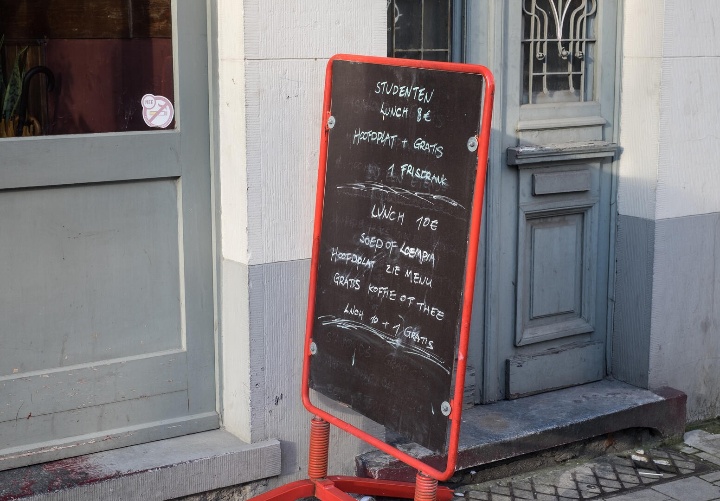 STUDENTEN
LUNCH 8€
HOOFDPLAT + GRATIS
1 FRISDRANK
LUNCH 10€
SOEP OF LOEMPIA
HOOFDPLAT ZIE MENU
GRATIS KOFFIE OF THEE
LNCH 10 + 1 GRATIS